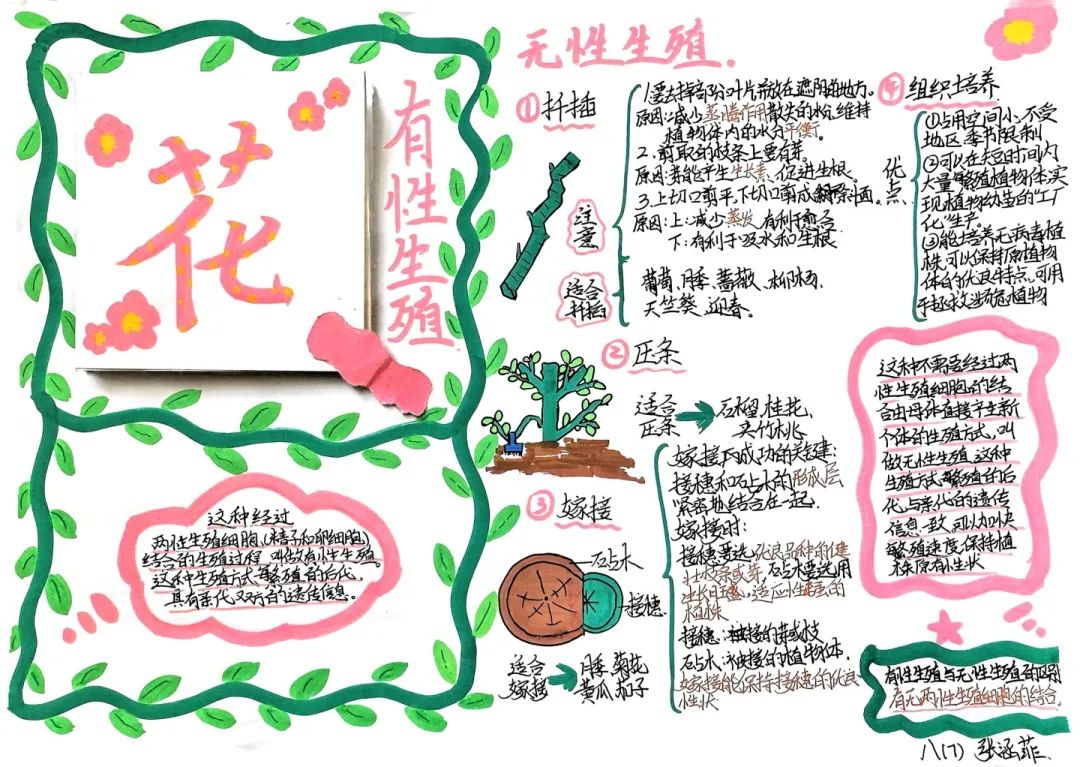 花
有性生殖
这种经过
两性生殖细胞(精子和卵细胞)
结合的生殖过程 叫做有性生殖
这种生殖方式繁殖的后代,
具有亲代双方的遗传信息。
无性生殖.
①扦插
注意
1.要去掉部分叶片并放在遮阴的地方。
原因:减少蒸腾作用散失的水分,维持
植物体内的水分平衡.
2.剪取的枝条上要有芽.
原因:芽能产生生长素、促进生根.
3.上切口剪平,下切口剪成斜面。
原因:上:减少蒸发,有利于愈合
下:有利于吸水和生根
适合扦插
葡萄、月季、蔷薇、柳杨、
天竺葵、迎春。
②压条
适合压条
石榴、桂花、
夹竹桃
③嫁接
砧木
接穗
适合嫁接
月季、菊花
黄瓜、茄子
嫁接成功的关键:
接穗和砧木的形成层
紧密地结合在一起.
嫁接时:
接穗要选优良品种的健
壮枝条或芽,砧木要选用
生长旺盛,适应性强的
植株
接穗:被接的芽或枝
砧木:被接的植物体.
嫁接能保持接穗的优良
性状
④组织培养
优点
①占用空间小,不受
地区、季节限制
②可以在短时间内
大量繁殖植物体,实
现植物幼苗的“工厂
化”生产
③能培养无病毒植
株,可以保持原植物
体的优良特点,可用
于拯救濒危植物
这种不需要经过两
性生殖细胞的结
合由母体直接产生新
个体的生殖方式,叫
做无性生殖,这种
生殖方式,繁殖的后
代,与亲代的遗传
信息一致,可以加快
繁殖速度,保持植
株原有性状
有性生殖与无性生殖的区别
有无两性生殖细胞的结合.
八(7) 张涵菲.